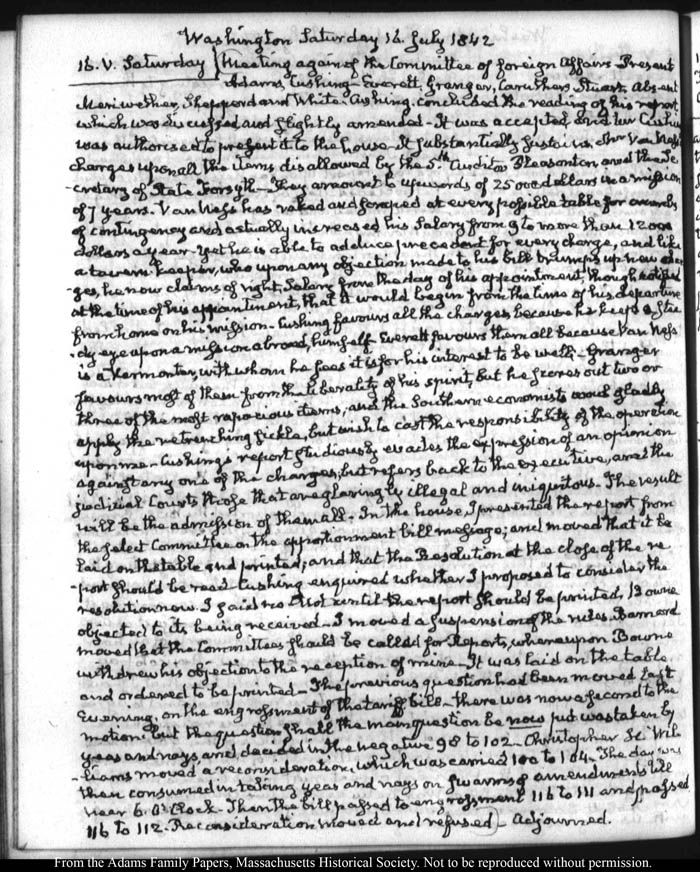 Washington Saturday 16. July 1842
16. V. Saturday Meeting again of the Committee of foreign Affairs Present
Adams, Cushing - Everett, Granger, Caruthers, Stuart, Absent
Meriwether, Shepperd and White. Cushing concluded the reading of his report
which was discussed and slightly amended - It was accepted and Cushing
was authorised to present it to the house - It substantially sustains Van Ness's
charges upon all the items disallowed by the 5th. Auditor Pleasonton, and the Se-
-cretary of State Forsyth - They amount to upwards of 25000 dollars in a mission
of 7 years. Van Ness has raked and scraped at every possible table for
of contingency and actually increased his Salary from 9 to more than 12000
dollars a year - yet he is able to adduce precedent for every charge, and like
a tavern-keeper, who upon any objection made to his bill trumps up new char-
ges, he now claims of right, Salary from the day of his appointment, though notified
at the time of his appointment, that it would begin from the time of his departure
from home on his mission - Cushing favours all the charges because he keeps a stea-
-dy eye upon a mission abroad, himself - Everett favours them all because Van Ness
is a Vermonter, with whom he sees it is for his interest to be well - Granger
favours most of them from the liberality of his spirit, but he scores out two or
three of the most rapacious items, and the Southern economists would gladly
apply the retrenching sickle, but wish to cast the responsibility of the operation
upon me - Cushing's report studiously evades the expression of an opinion
against any one of the charges, but refers back to the executive, and the
judicial Courts those that are glaringly illegal and iniquitous - The result
will be the admission of them all - In the house, I presented the report from
the select Committee on the apportionment bill message; and moved that it be
laid on the table and printed; and that the Resolution at the close of the re
-port should be read - Cushing enquired whether I proposed to consider the
resolution now. I said no - Not until the report should be printed, Bowne
objected to its being received - I moved a suspension of the rules. Barnard
moved that the Committees should be called for Reports, whereupon Bowne
withdrew his objection to the reception of mine - It was laid on the table
and ordered to be printed - The previous question had been moved last
Evening, on the engrossment of the tariff bill - there was now a second to the
motion. but the question shall the main question be now put was taken by
yeas and nays, and decided in the negative 98 to 102 - Christopher H. Wil-
-liams moved a reconsideration, which was carried 100 to 104 - The day was
then consumed in taking yeas and nays on swarms of amendments till
near 6. O'Clock - Then the bill passed to engrossment 116 to 111 and passed
116 to 112 - Reconsideration moved and refused - Adjourned.
From the Adams Family Papers, Massachusetts Historical Society. Not to be reproduced without permission.